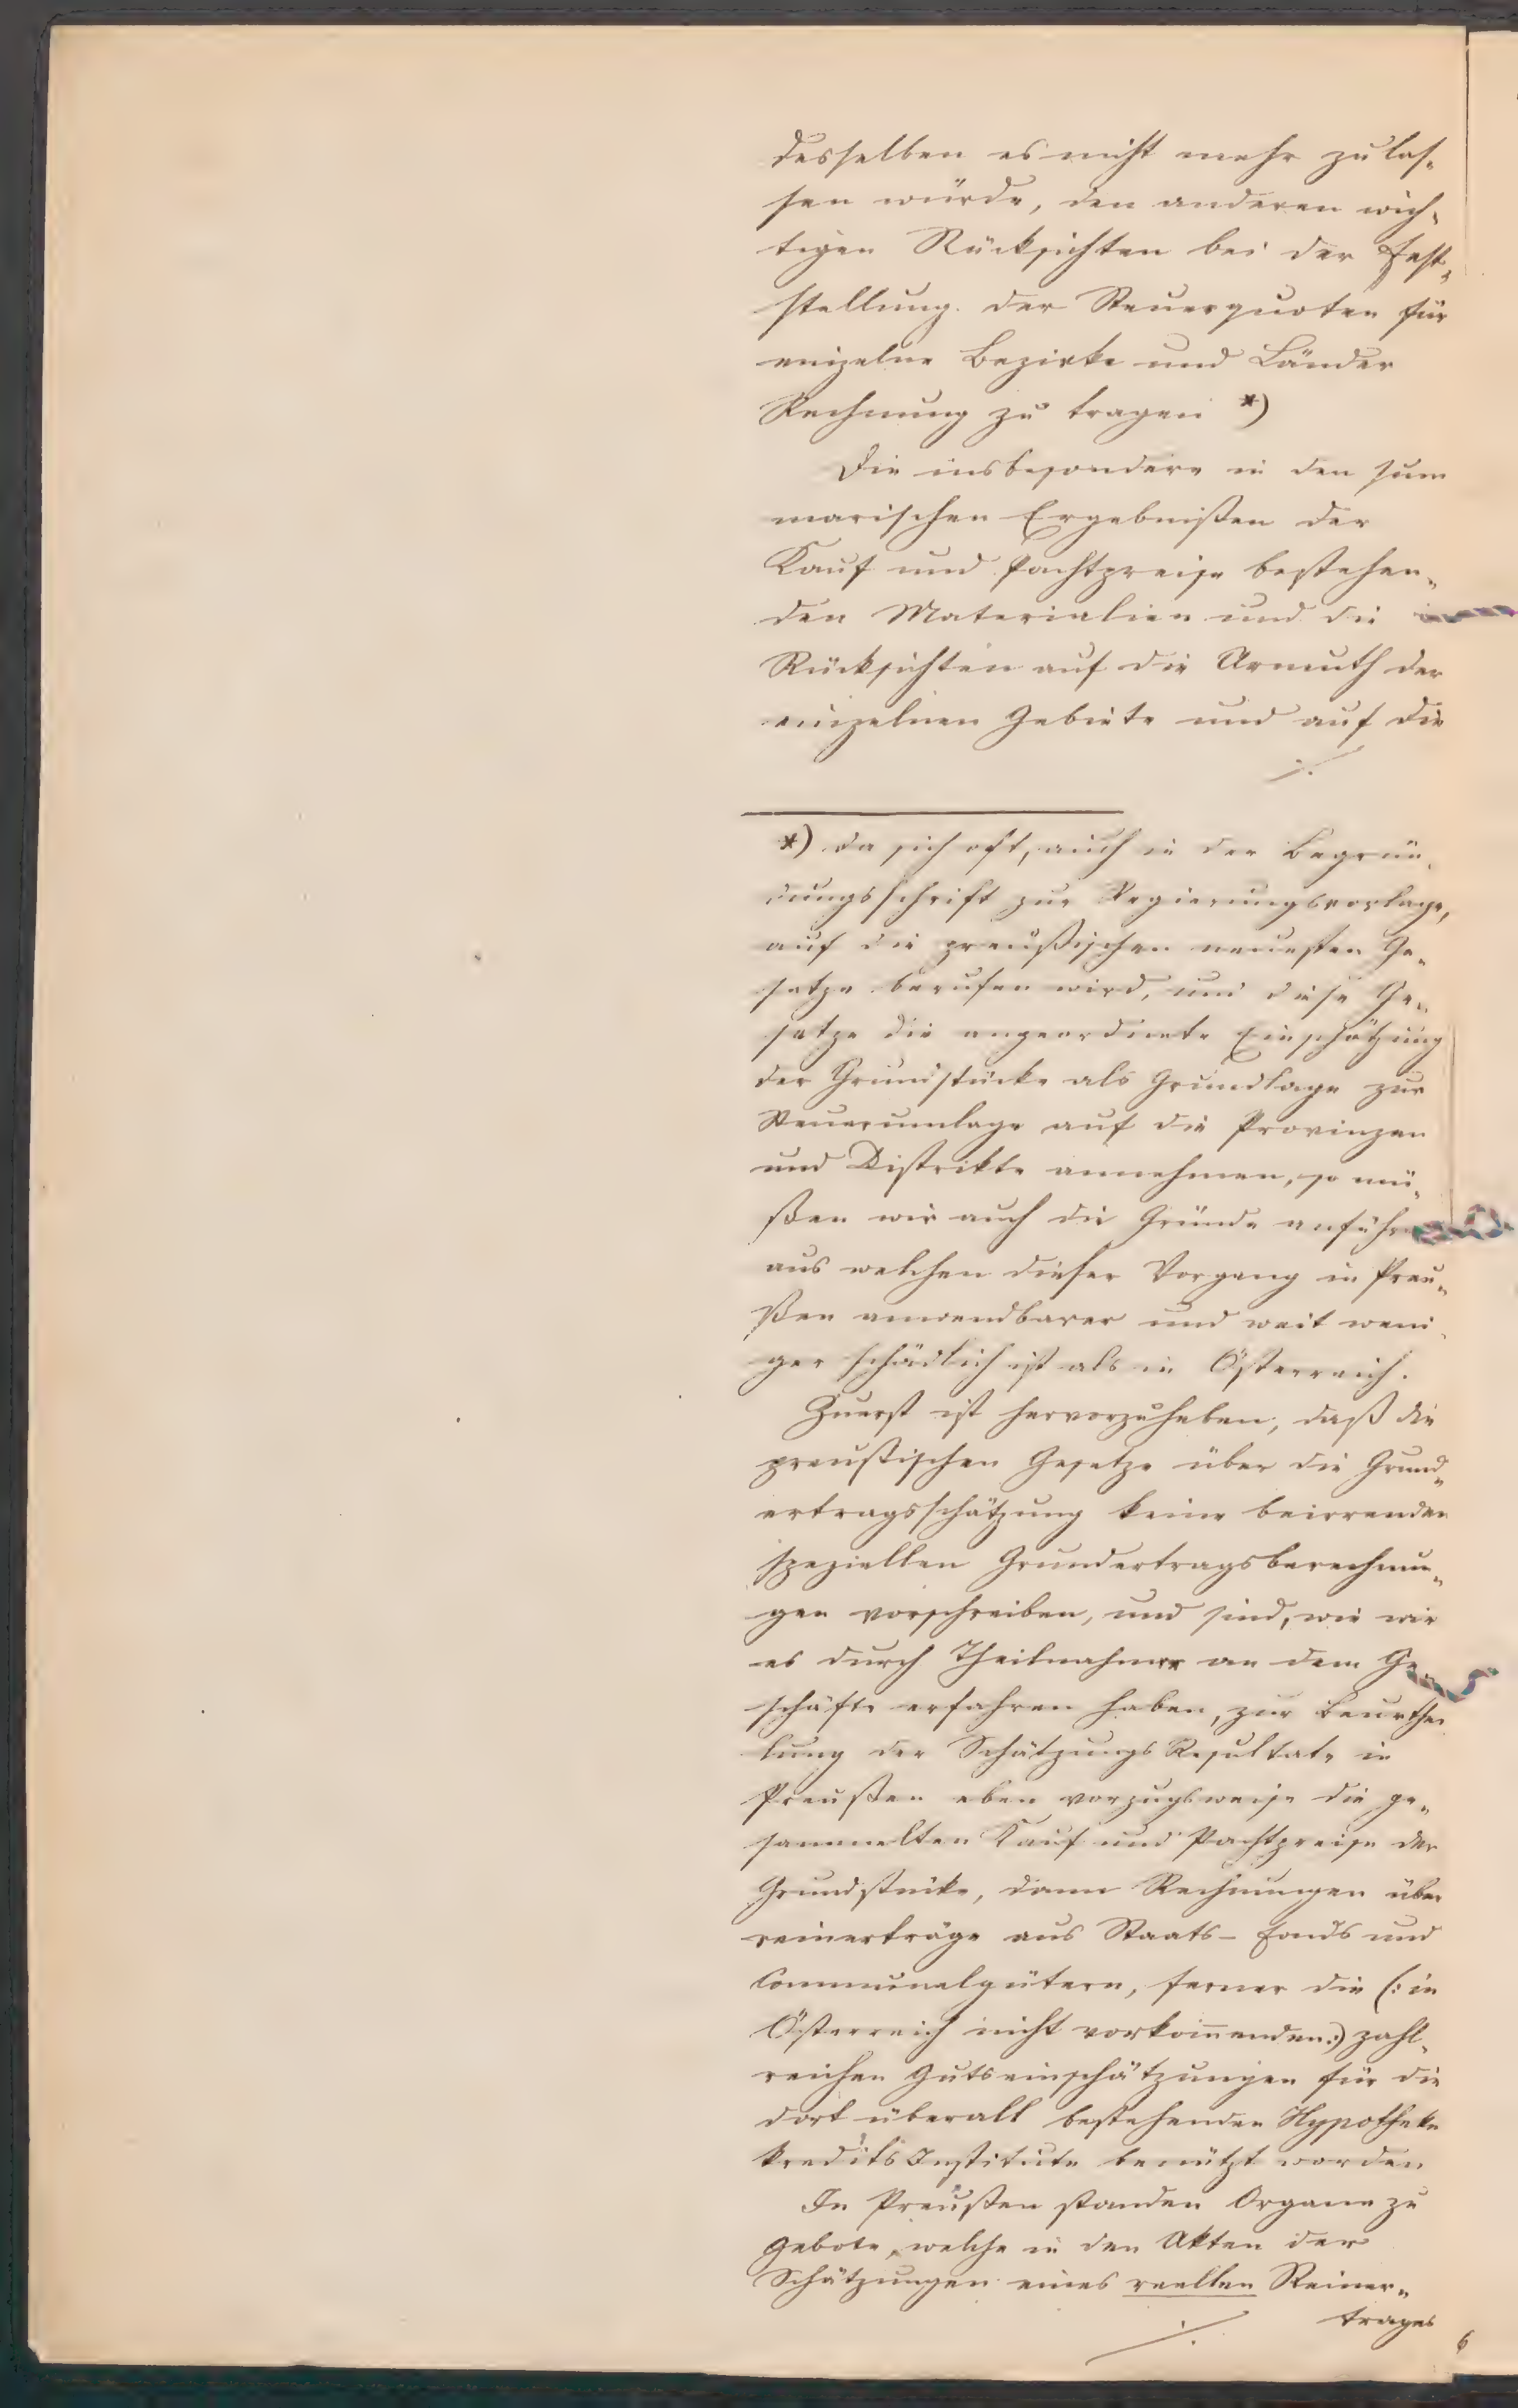 desselben es nicht mehr zulas-
sen würde, den anderen wich-
tigen Rücksichten bei der Fest-
stellung der Steuerquoten für
einzelne Bezirke und Länder
Rechnung zu tragen *)
Die insbesondere in den sum
marischen Ergebnißen der
Kauf und Pachtpreise bestehen-
den Materialien und die
Rücksichten auf die Armuth der
einzelnen Gebiete und auf die
./.
*) Da sich oft, auch in der Begrün-
dungsschrift zur Regierungsvorlage,
auf die preußischen neuesten Ge-
setze berufen wird, und diese Ge-
setze die angeordnete Einschätzung
der Grundstücke als Grundlage zur
Steuerumlage auf die Provinzen
und Distrikte annehmen, so mü-
ßen wir auch die Gründe anführen
aus welchen dieser Vorgang in Preu-
ßen anwendbarer und weit weni-
ger schädlich ist als in Österreich.
Zuerst ist hervorzuheben, daß die
preußischen Gesetze über die Grund-
ertragsschätzung keine beirrenden
speziellen Grundertragsberechnun-
gen vorschreiben, und sind, wie wir
es durch Theilnahme an dem Ge-
schäfte erfahren haben, zur Beurthei
lung der Schätzungs Resultate in
Preußen eben vorzugsweise die ge-
sammelten Kauf und Pachtpreise der
Grundstücke, dann Rechnungen über
reinerträge aus Staats- Fonds und
Communalgütern, ferner die (: in
Österreich nicht vorkom̅enden :) zahl-
reichen Gutseinschätzungen für die
dort überall bestehenden Hypotheken
kredits Institute benützt worden
In Preußen standen Organe zu
Gebote, welche in den Akten der
Schätzungen eines reellen Reiner-
trages
./.
6